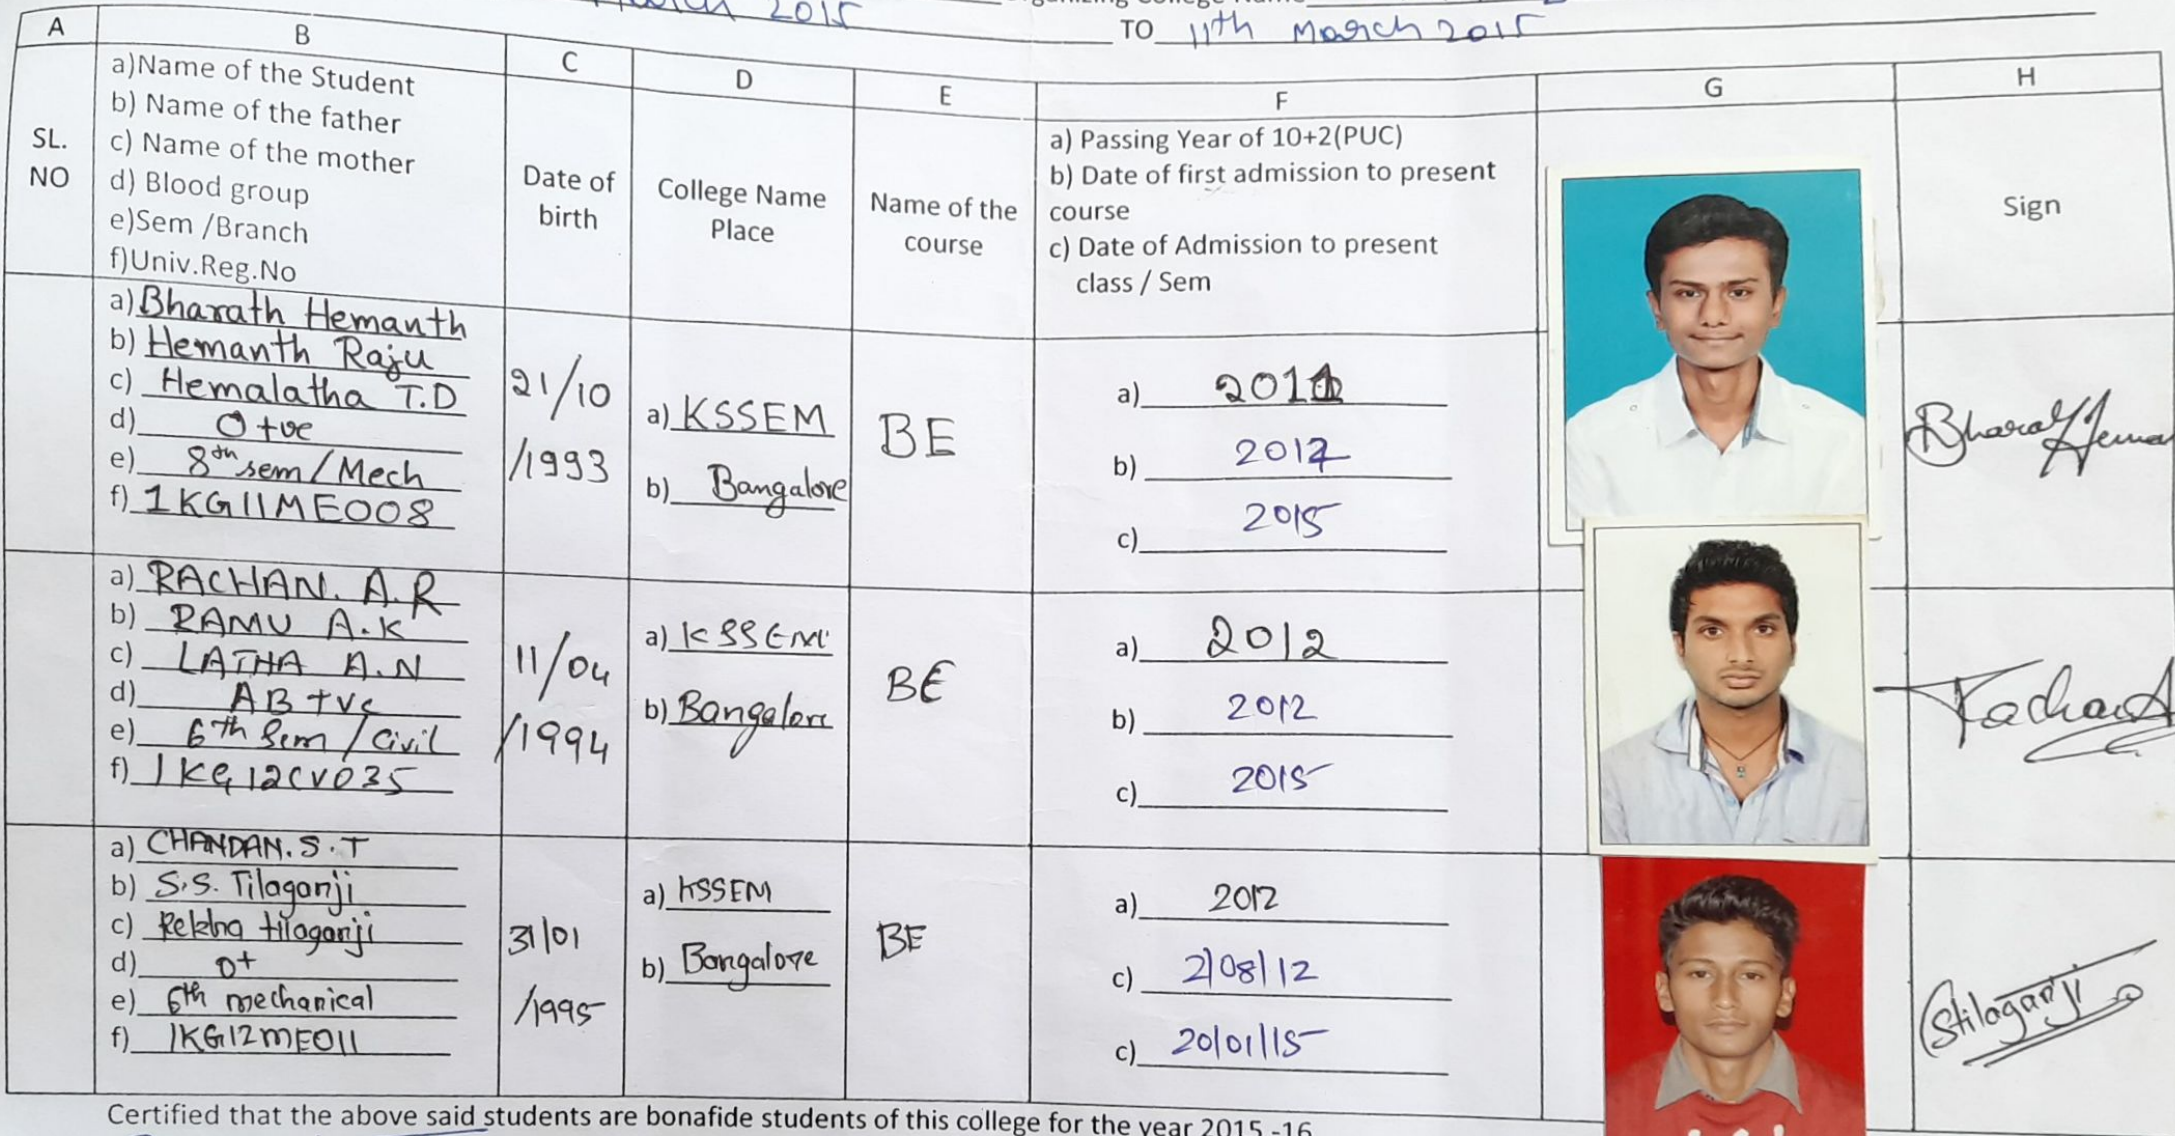 March 2015
TO 11th March 2015
A B C D E F G H
SL.
NO
a)Name of the Student
b) Name of the father
c) Name of the mother
d) Blood group
e)Sem /Branch
f)Univ.Reg.No
Date of
birth
College Name
Place
Name of the
course
a) Passing Year of 10+2(PUC)
b) Date of first admission to present
course
c) Date of Admission to present
class / Sem
Sign
a) Bharath Hemanth
b) Hemanth Raju
c) Hemalatha T.D
d) O+ve
e) 8th sem/Mech
f) 1KG11ME008
21/10
/1993
a) KSSEM
b) Bangalore
BE
a) 2011
b) 2012
c) 2015
a) RACHAN. A.R
b) RAMU A.K
c) LATHA A.N
d) AB+ve
e) 6th Sem / Civil
f) 1KG12CV035
11/04
/1994
a) KSSEM
b) Bangalore
BE
a) 2012
b) 2012
c) 2015
a) CHANDAN.S.T
b) S.S. Tilaganji
c) Rekha tilaganji
d) O+
e) 6th mechanical
f) 1KG12ME011
31/01
/1995
a) KSSEM
b) Bangalore
BE
a) 2012
c) 2/08/12
c) 20/01/15
Stilaganji
Certified that the above said students are bonafide students of this college for the year 2015 -16